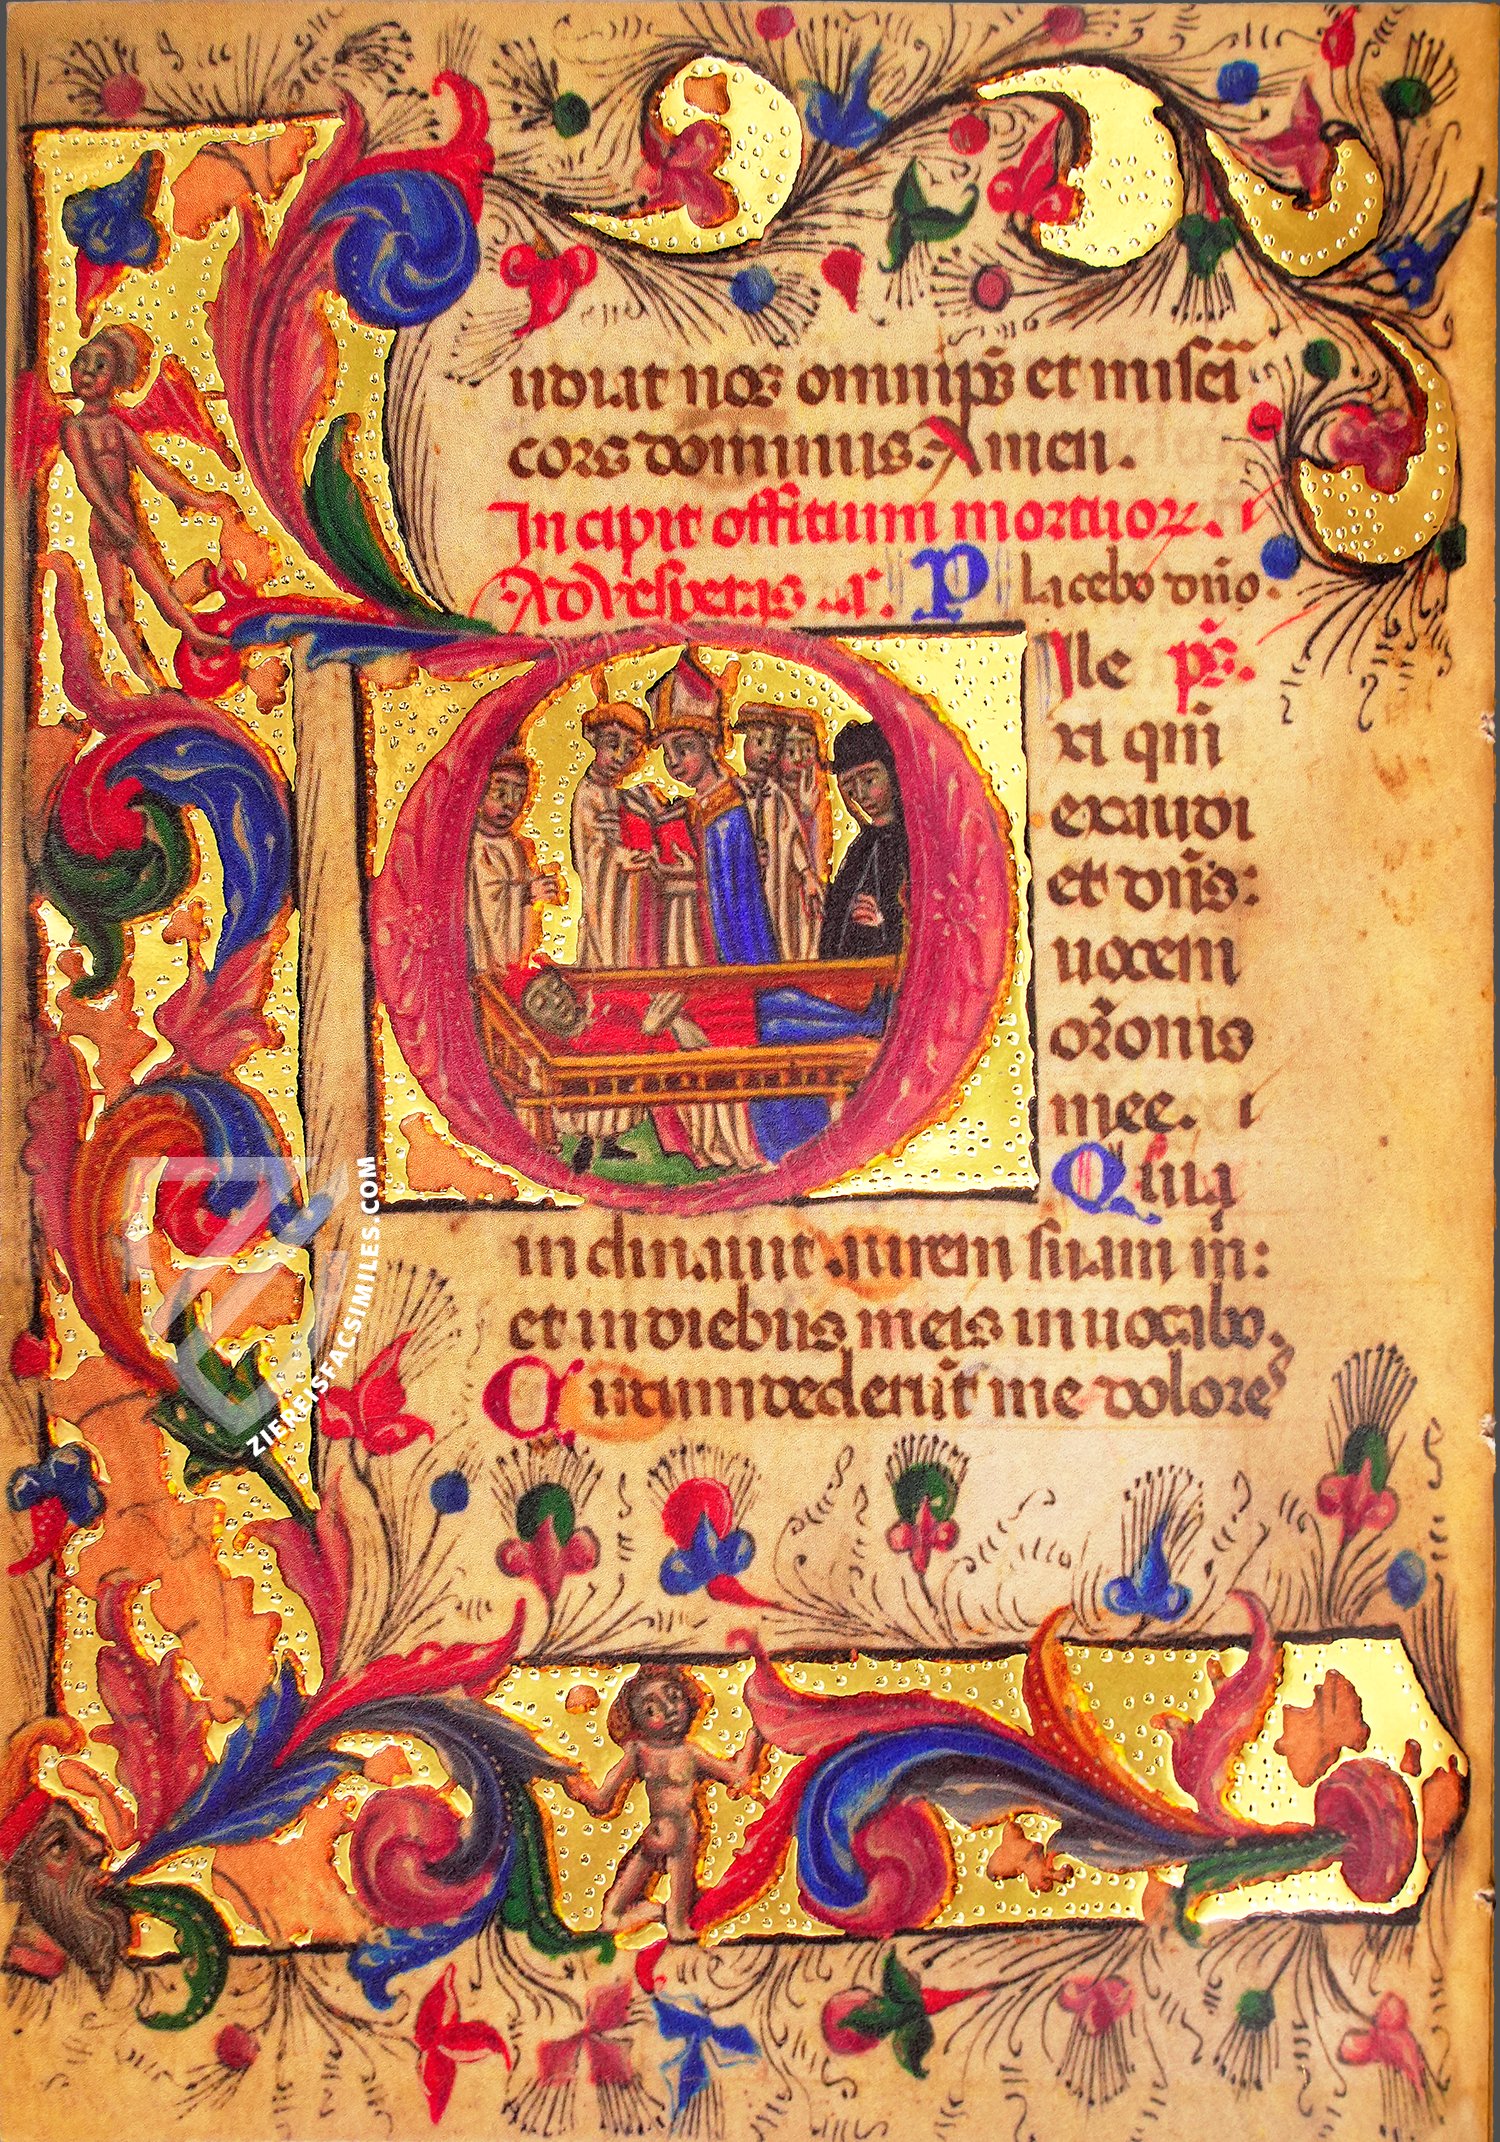 udiat nos omnip̄s et miseī
cors dominus. Amen.
Incipit offitium mortuor. 
Ad vesperas. a. Placebo dño.
Ile. ps.
xi qm̄
exaudi
et dn̄s:
uocem
or̄onis
mee.
Quia
inclinauit aurem suam m̄:
et in diebus meis inuocabo.
Circumdederūt me dolores
ZIEREISFACSIMILES.COM